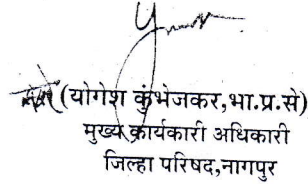 (योगेश कुंभेजकर,भा.प्र.से)
मुख्य कार्यकारी अधिकारी
जिल्हा परिषद,नागपुर